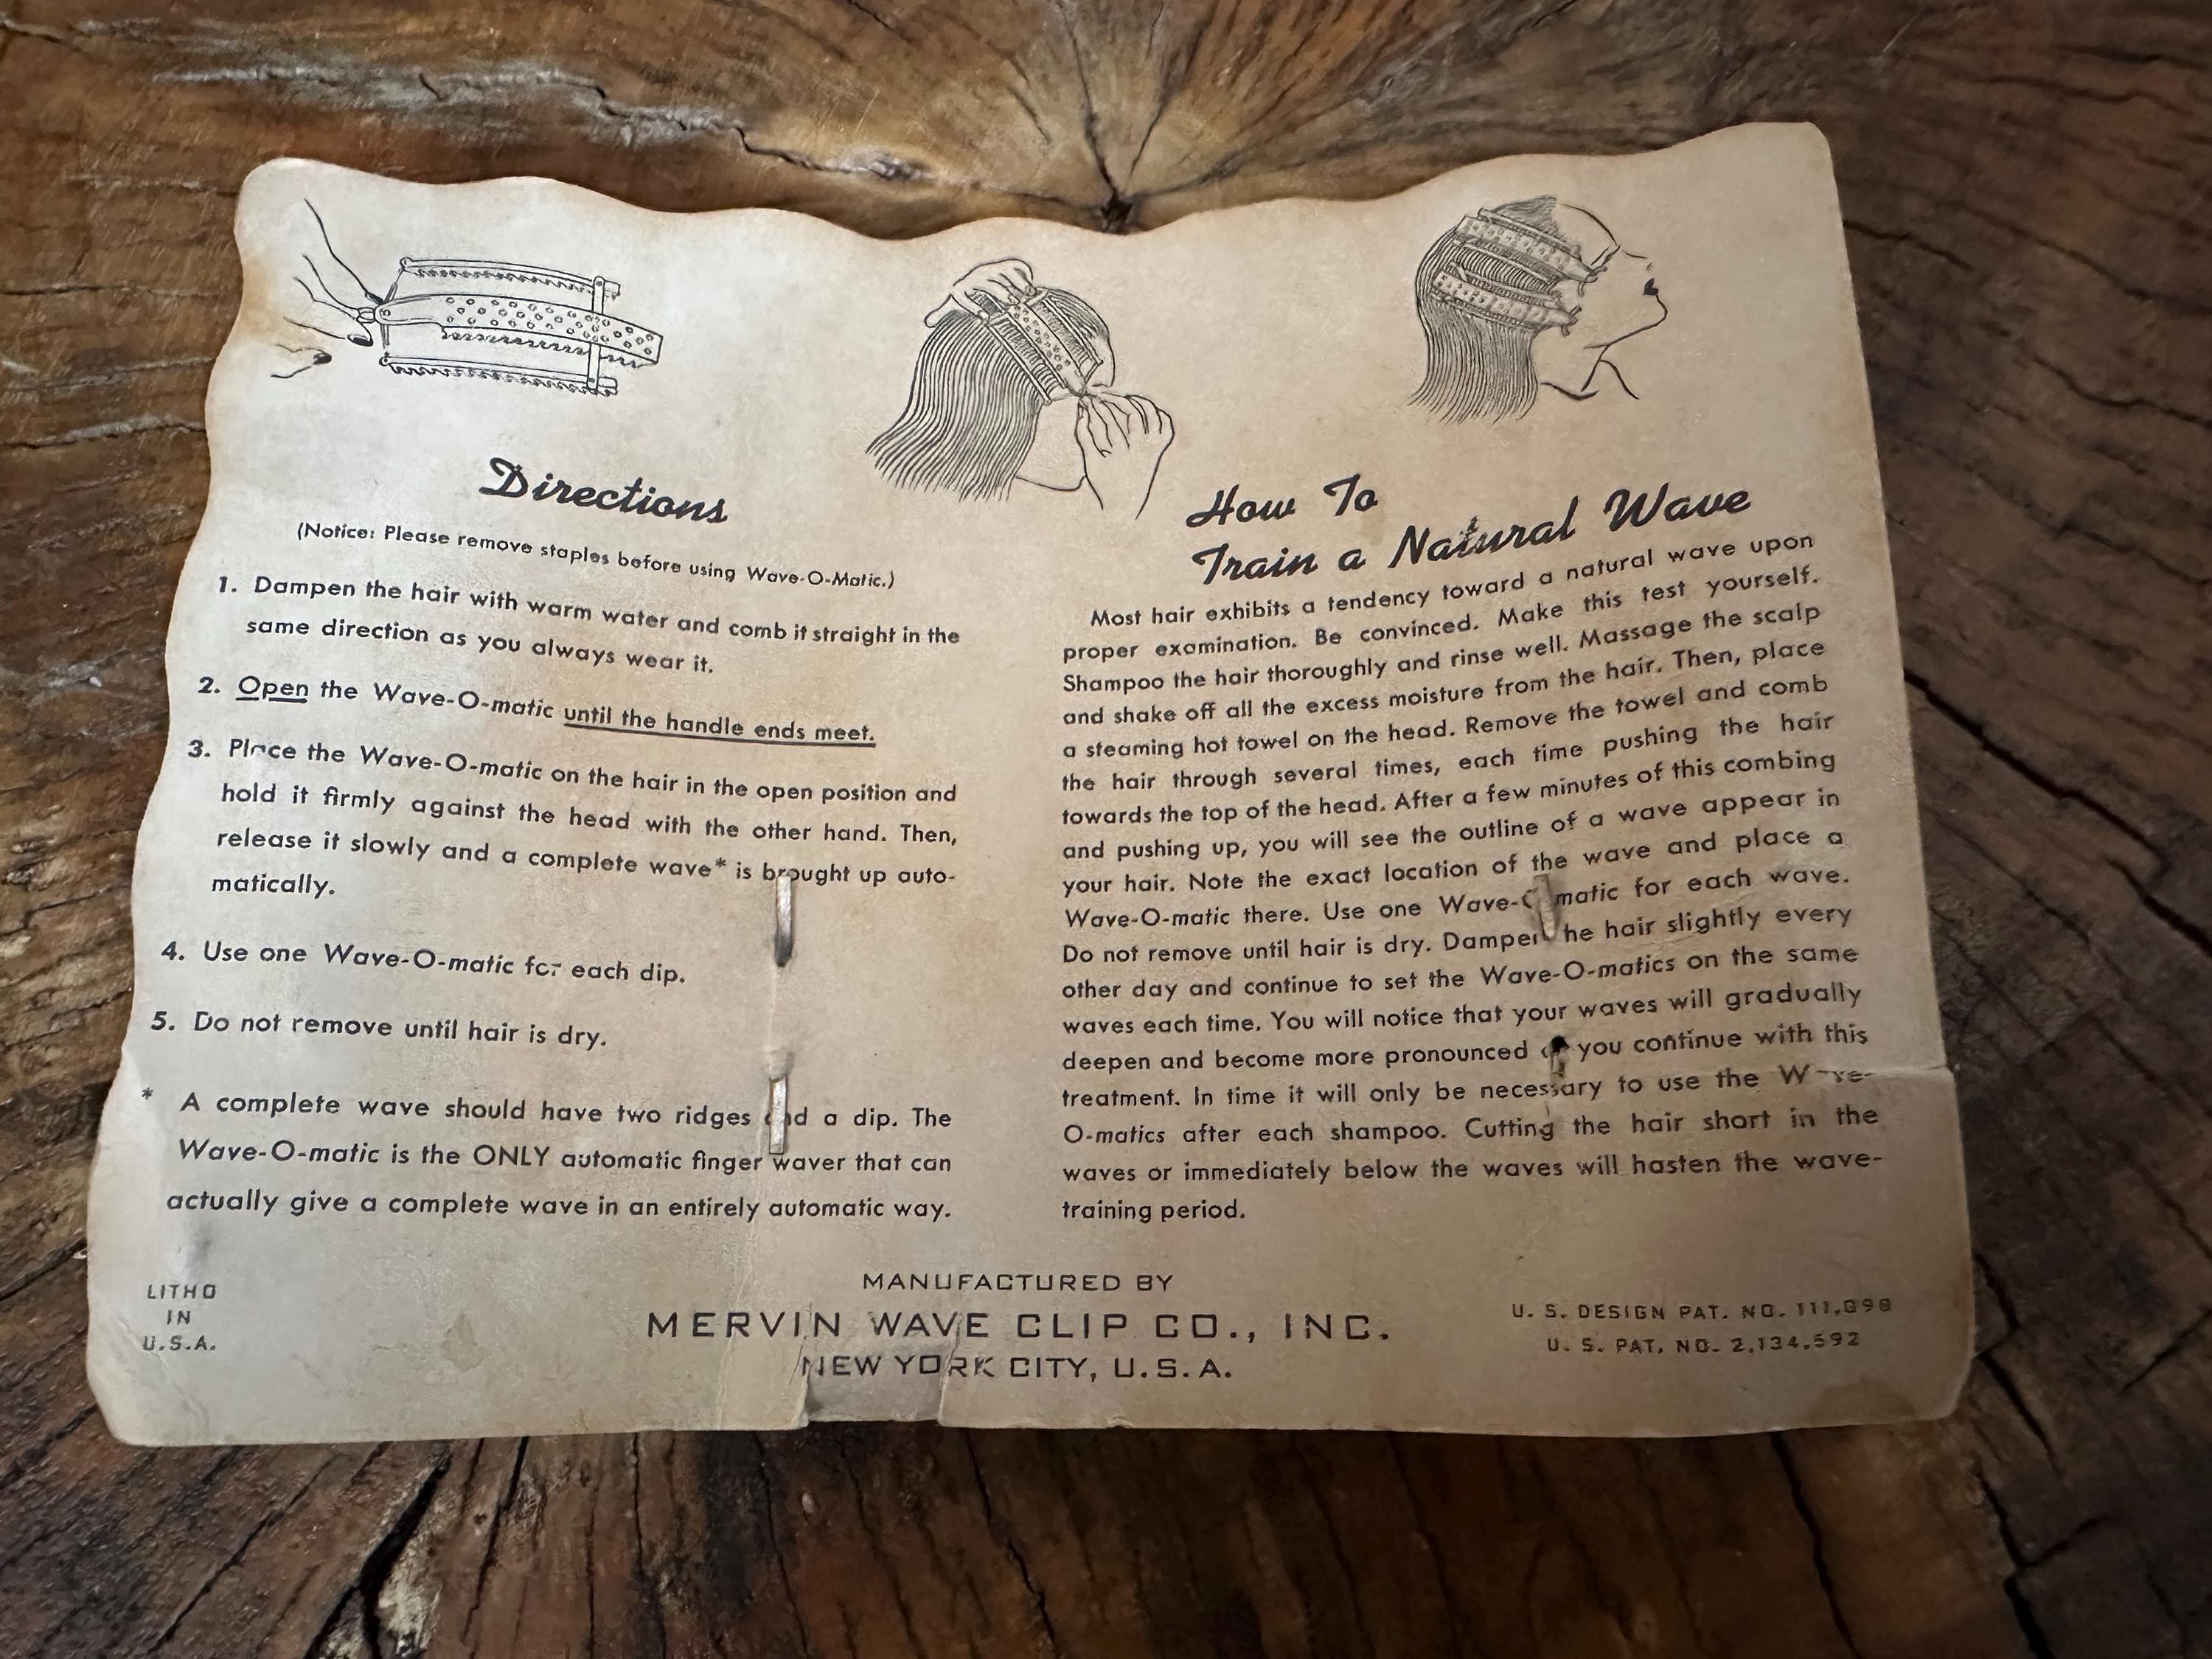 Directions
(Notice: Please remove staples before using Wave-O-Matic.)
1. Dampen the hair with warm water and comb it straight in the
same direction as you always wear it.
2. Open the Wave-O-matic until the handle ends meet.
3. Place the Wave-O-matic on the hair in the open position and
hold it firmly against the head with the other hand. Then,
release it slowly and a complete wave* is brought up auto-
matically.
4. Use one Wave-O-matic for each dip.
5. Do not remove until hair is dry.
* A complete wave should have two ridges and a dip. The
Wave-O-matic is the ONLY automatic finger waver that can
actually give a complete wave in an entirely automatic way.
How To
Train a Natural Wave
Most hair exhibits a tendency toward a natural wave upon
proper examination. Be convinced. Make this test yourself.
Shampoo the hair thoroughly and rinse well. Massage the scalp
and shake off all the excess moisture from the hair. Then, place
a steaming hot towel on the head. Remove the towel and comb
the hair through several times, each time pushing the hair
towards the top of the head. After a few minutes of this combing
and pushing up, you will see the outline of a wave appear in
your hair. Note the exact location of the wave and place a
Wave-O-matic there. Use one Wave-O-matic for each wave.
Do not remove until hair is dry. Dampen the hair slightly every
other day and continue to set the Wave-O-matics on the same
waves each time. You will notice that your waves will gradually
deepen and become more pronounced you continue with this
treatment. In time it will only be necessary to use the Wave-
O-matics after each shampoo. Cutting the hair short in the
waves or immediately below the waves will hasten the wave-
training period.
LITHO
IN
U.S.A.
MANUFACTURED BY
MERVIN WAVE CLIP CO., INC.
NEW YORK CITY, U.S.A.
U. S. DESIGN PAT. NO.
U. S. PAT. NO. 2,134,592